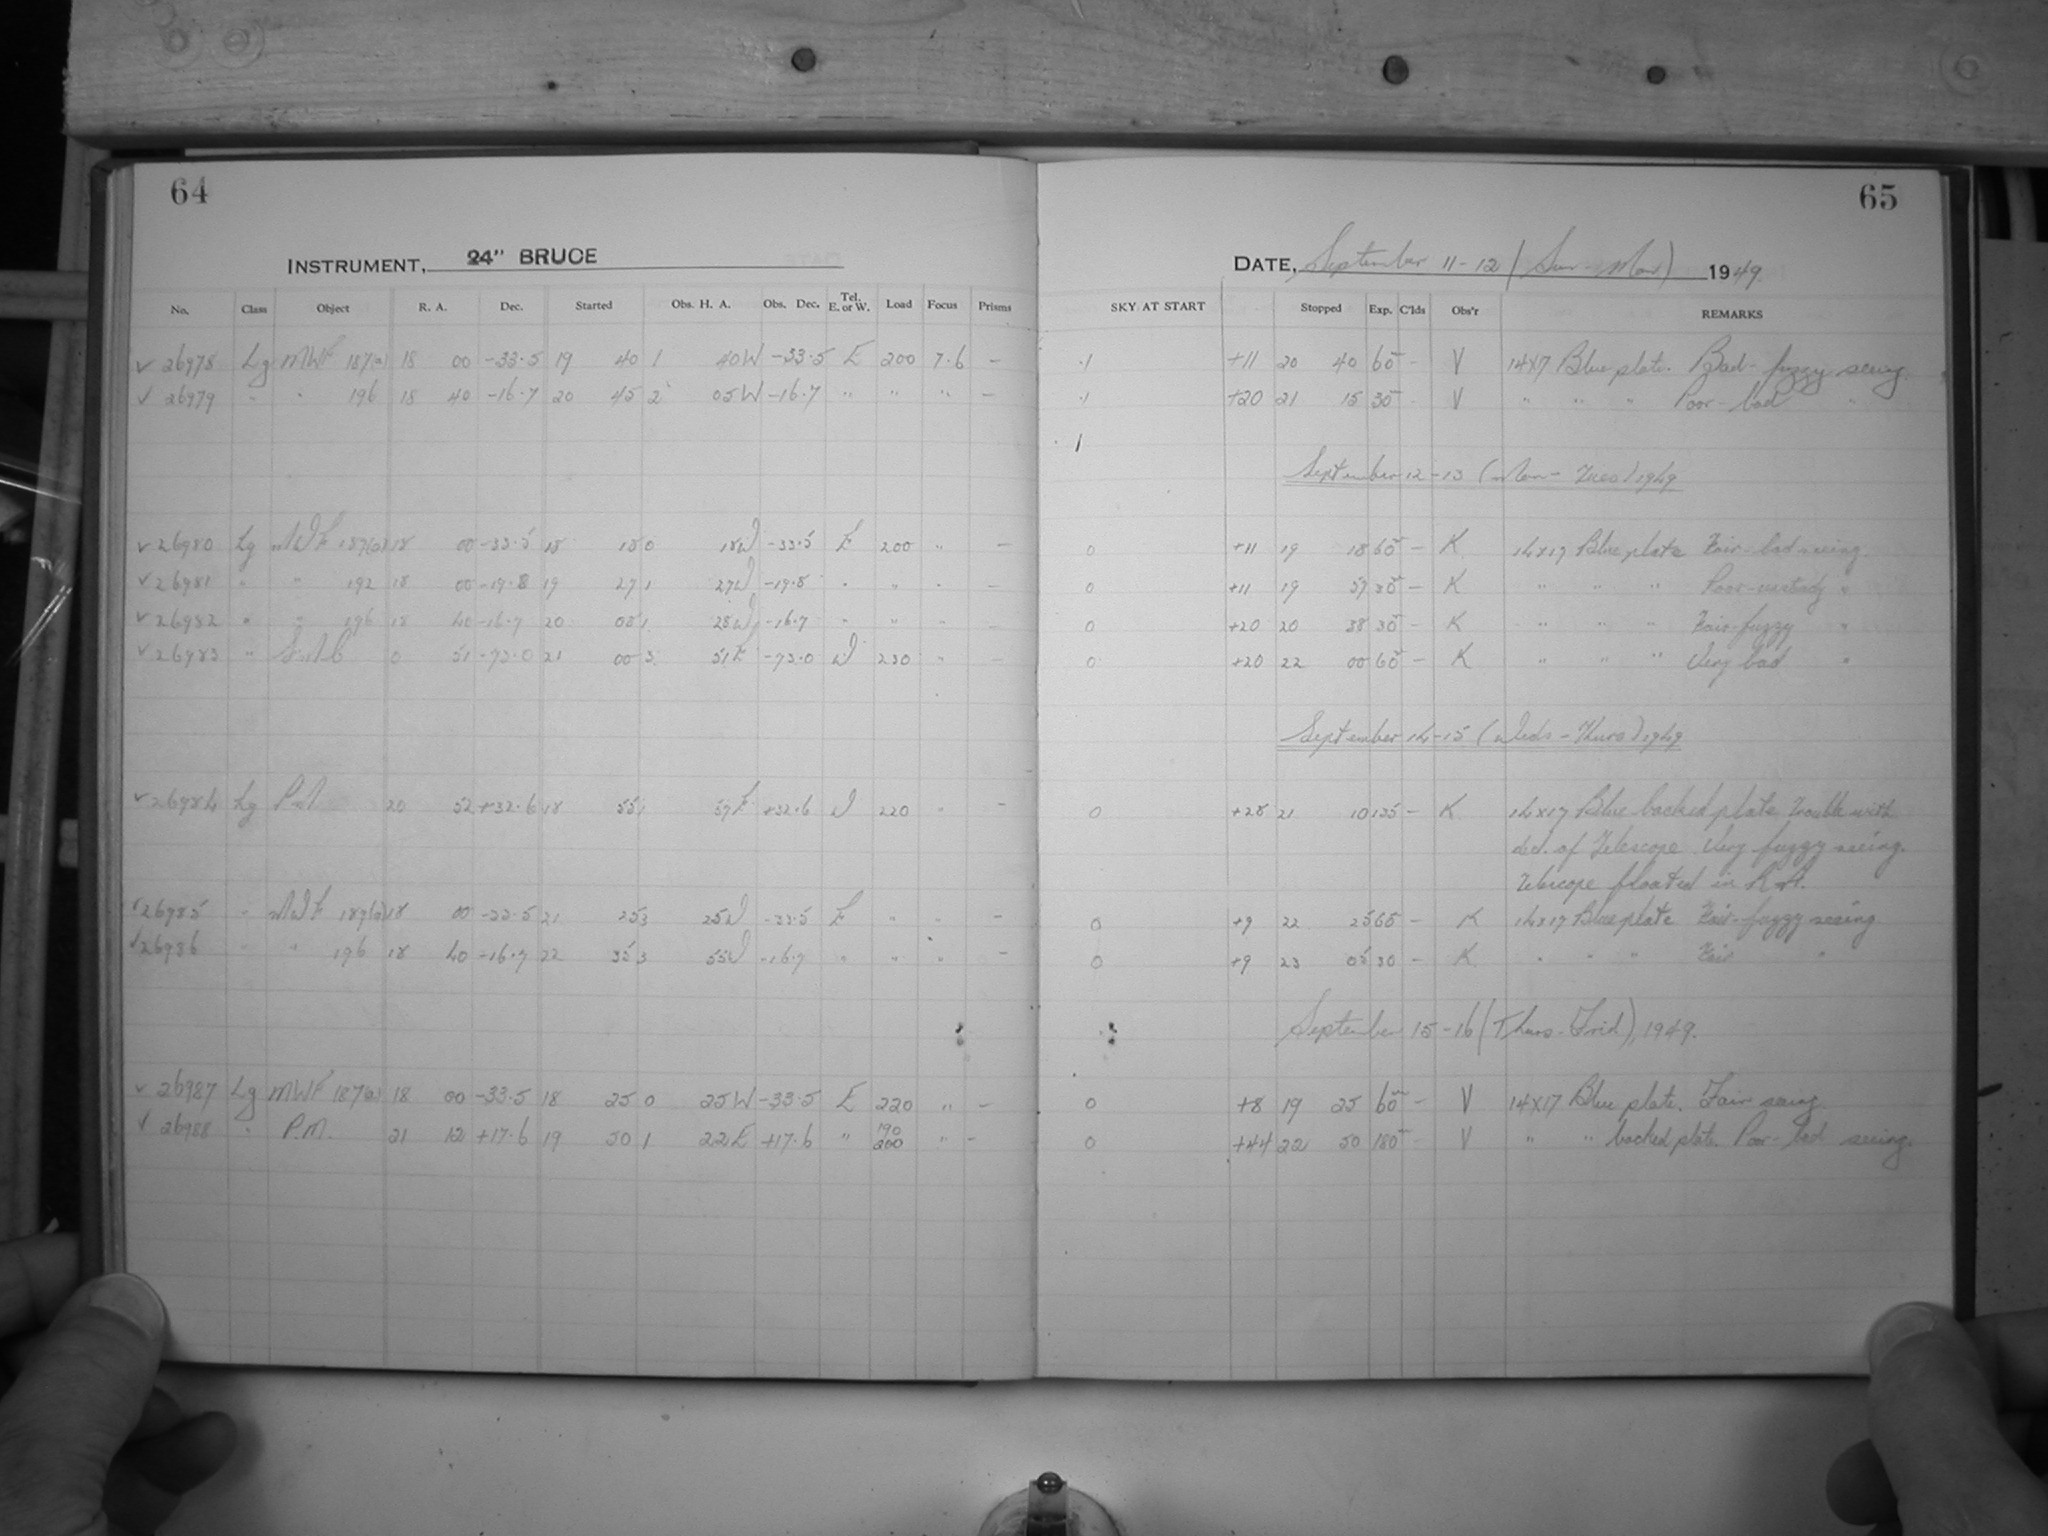 64
INSTRUMENT, 24" BRUCE
No. Class Object R. A. Dec. Started Obs. H. A. Obs. Dec. Tel. E. or W. Load Focus Prisms
✓ 26978 Lg MWF 187(a) 18 00 -33.5 19 40 1 40W -33.5 E 200 7.6 -
✓ 26979 " " 196 18 40 -16.7 20 45 2 05W -16.7 " " " -
✓ 26980 Lg MWF 187(a) 18 00 -33.5 18 18 0 18W -33.5 E 200 " -
✓ 26981 " " 192 18 00 -19.8 19 27 1 27W -19.8 " " " -
✓ 26982 " " 196 18 40 -16.7 20 08 1 28W -16.7 " " " -
✓ 26983 " SMC 0 51 -73.0 21 00 3 51E -73.0 W 230 " -
✓ 26984 Lg PM 20 52 +32.6 18 55 1 57E +32.6 W 220 " -
✓ 26985 " MWF 187(a) 18 00 -33.5 21 25 3 25W -33.5 E " " -
✓ 26986 " " 196 18 40 -16.7 22 35 3 55W -16.7 " " " -
✓ 26987 Lg MWF 187(a) 18 00 -33.5 18 25 0 25W -33.5 E 220 " -
✓ 26988 " P.M. 21 12 +17.6 19 50 1 22E +17.6 " 190 200 " -
65
DATE, September 11-12 (Sun-Mon) 1949.
SKY AT START Stopped Exp. C'lds Obs'r REMARKS
.1 +11 20 40 60m - V 14X17 Blue plate. Bad-fuzzy seeing.
.1 +20 21 15 30m - V " " " Poor-bad "
1
September 12-13 (Mon-Tues) 1949
0 +11 19 18 60m - K 14x17 Blue plate Fair-bad seeing
0 +11 19 57 30m - K " " " Poor-unsteady "
0 +20 20 38 30m - K " " " Fair-fuzzy "
0 +20 22 00 60m - K " " " Very bad "
September 14-15 (Weds-Thurs) 1949
0 +28 21 10 135 - K 14x17 Blue backed plate Trouble with
dec. of Telescope Very fuzzy seeing.
Telescope floated in R.A.
0 +9 22 25 60 - K 14x17 Blue plate Fair-fuzzy seeing
0 +9 23 05 30 - K " " " Fair "
September 15-16 (Thurs-Frid), 1949.
0 +8 19 25 60m - V 14X17 Blue plate. Fair seeing
0 +44 22 50 180m - V " " backed plate. Poor-bad seeing.